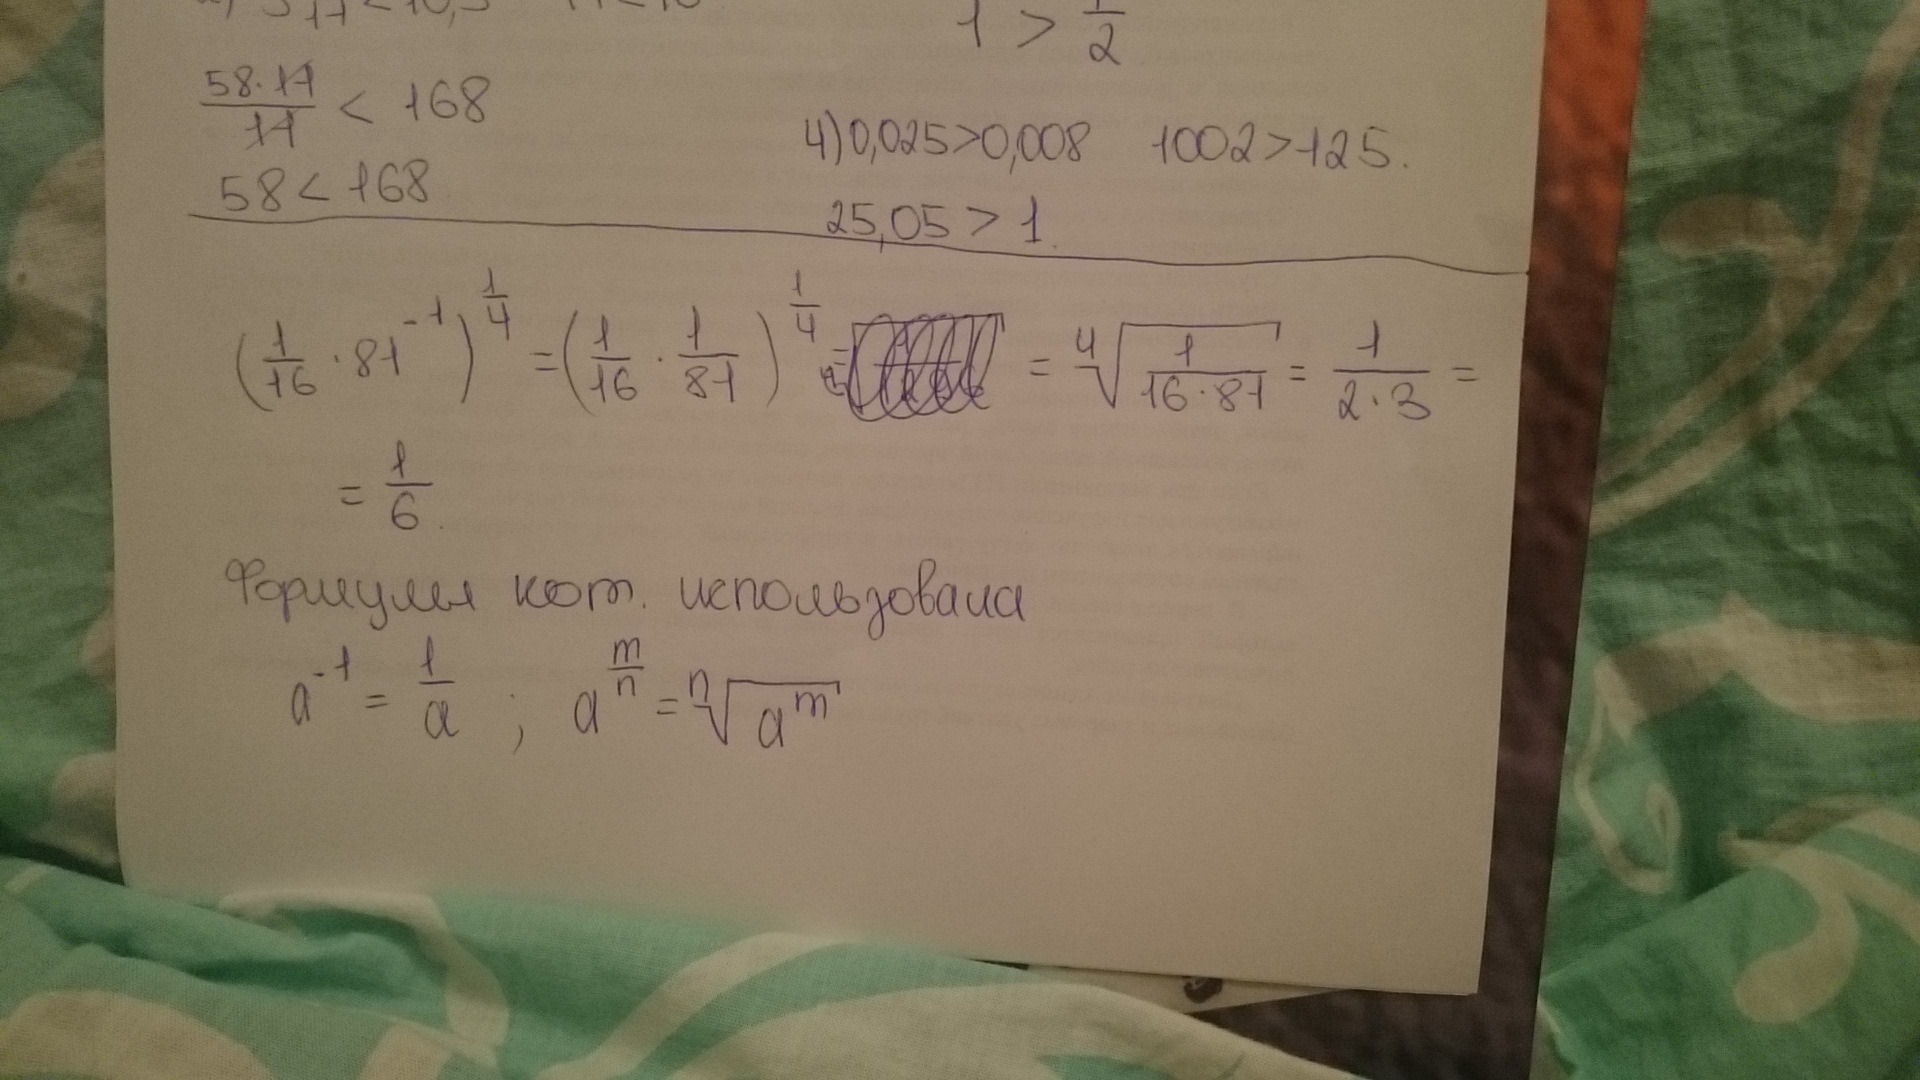 1 > 1/2
(58·11)/11 < 168
58 < 168
4) 0,025>0,008 1002>125.
25,05 > 1.
(1/16 · 81^-1)^1/4 = (1/16 · 1/81)^1/4 = = ⁴√(1/(16·81)) = 1/(2·3) =
= 1/6.
Формулы кот. использовала
a^-1 = 1/a ; a^m/n = ⁿ√(a^m)